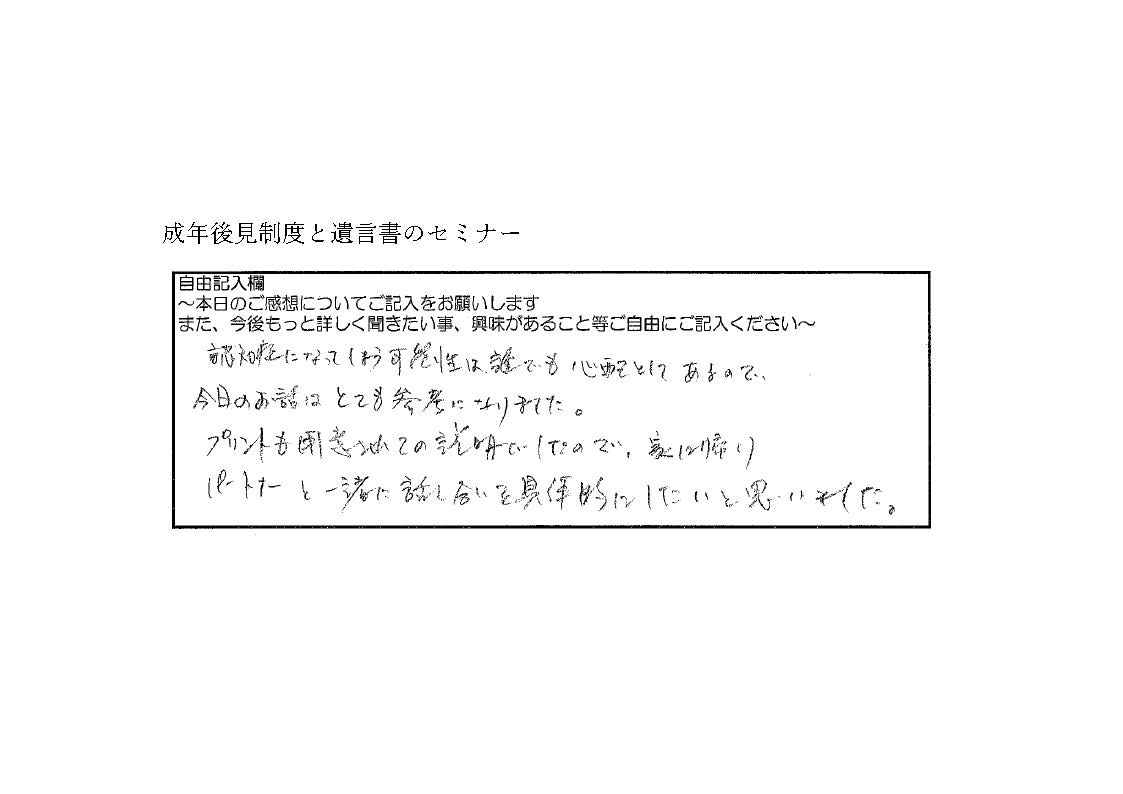 成年後見制度と遺言書のセミナー
自由記入欄
～本日のご感想についてご記入をお願いします
また、今後もっと詳しく聞きたい事、興味があること等ご自由にご記入ください～
認知症になってしまう可能性は、誰でも心配としてあるので、
今日のお話はとても参考になりました。
プリントも用意されての説明でしたので、家に帰り
パートナーと一緒に話し合いを具体的にしたいと思いました。